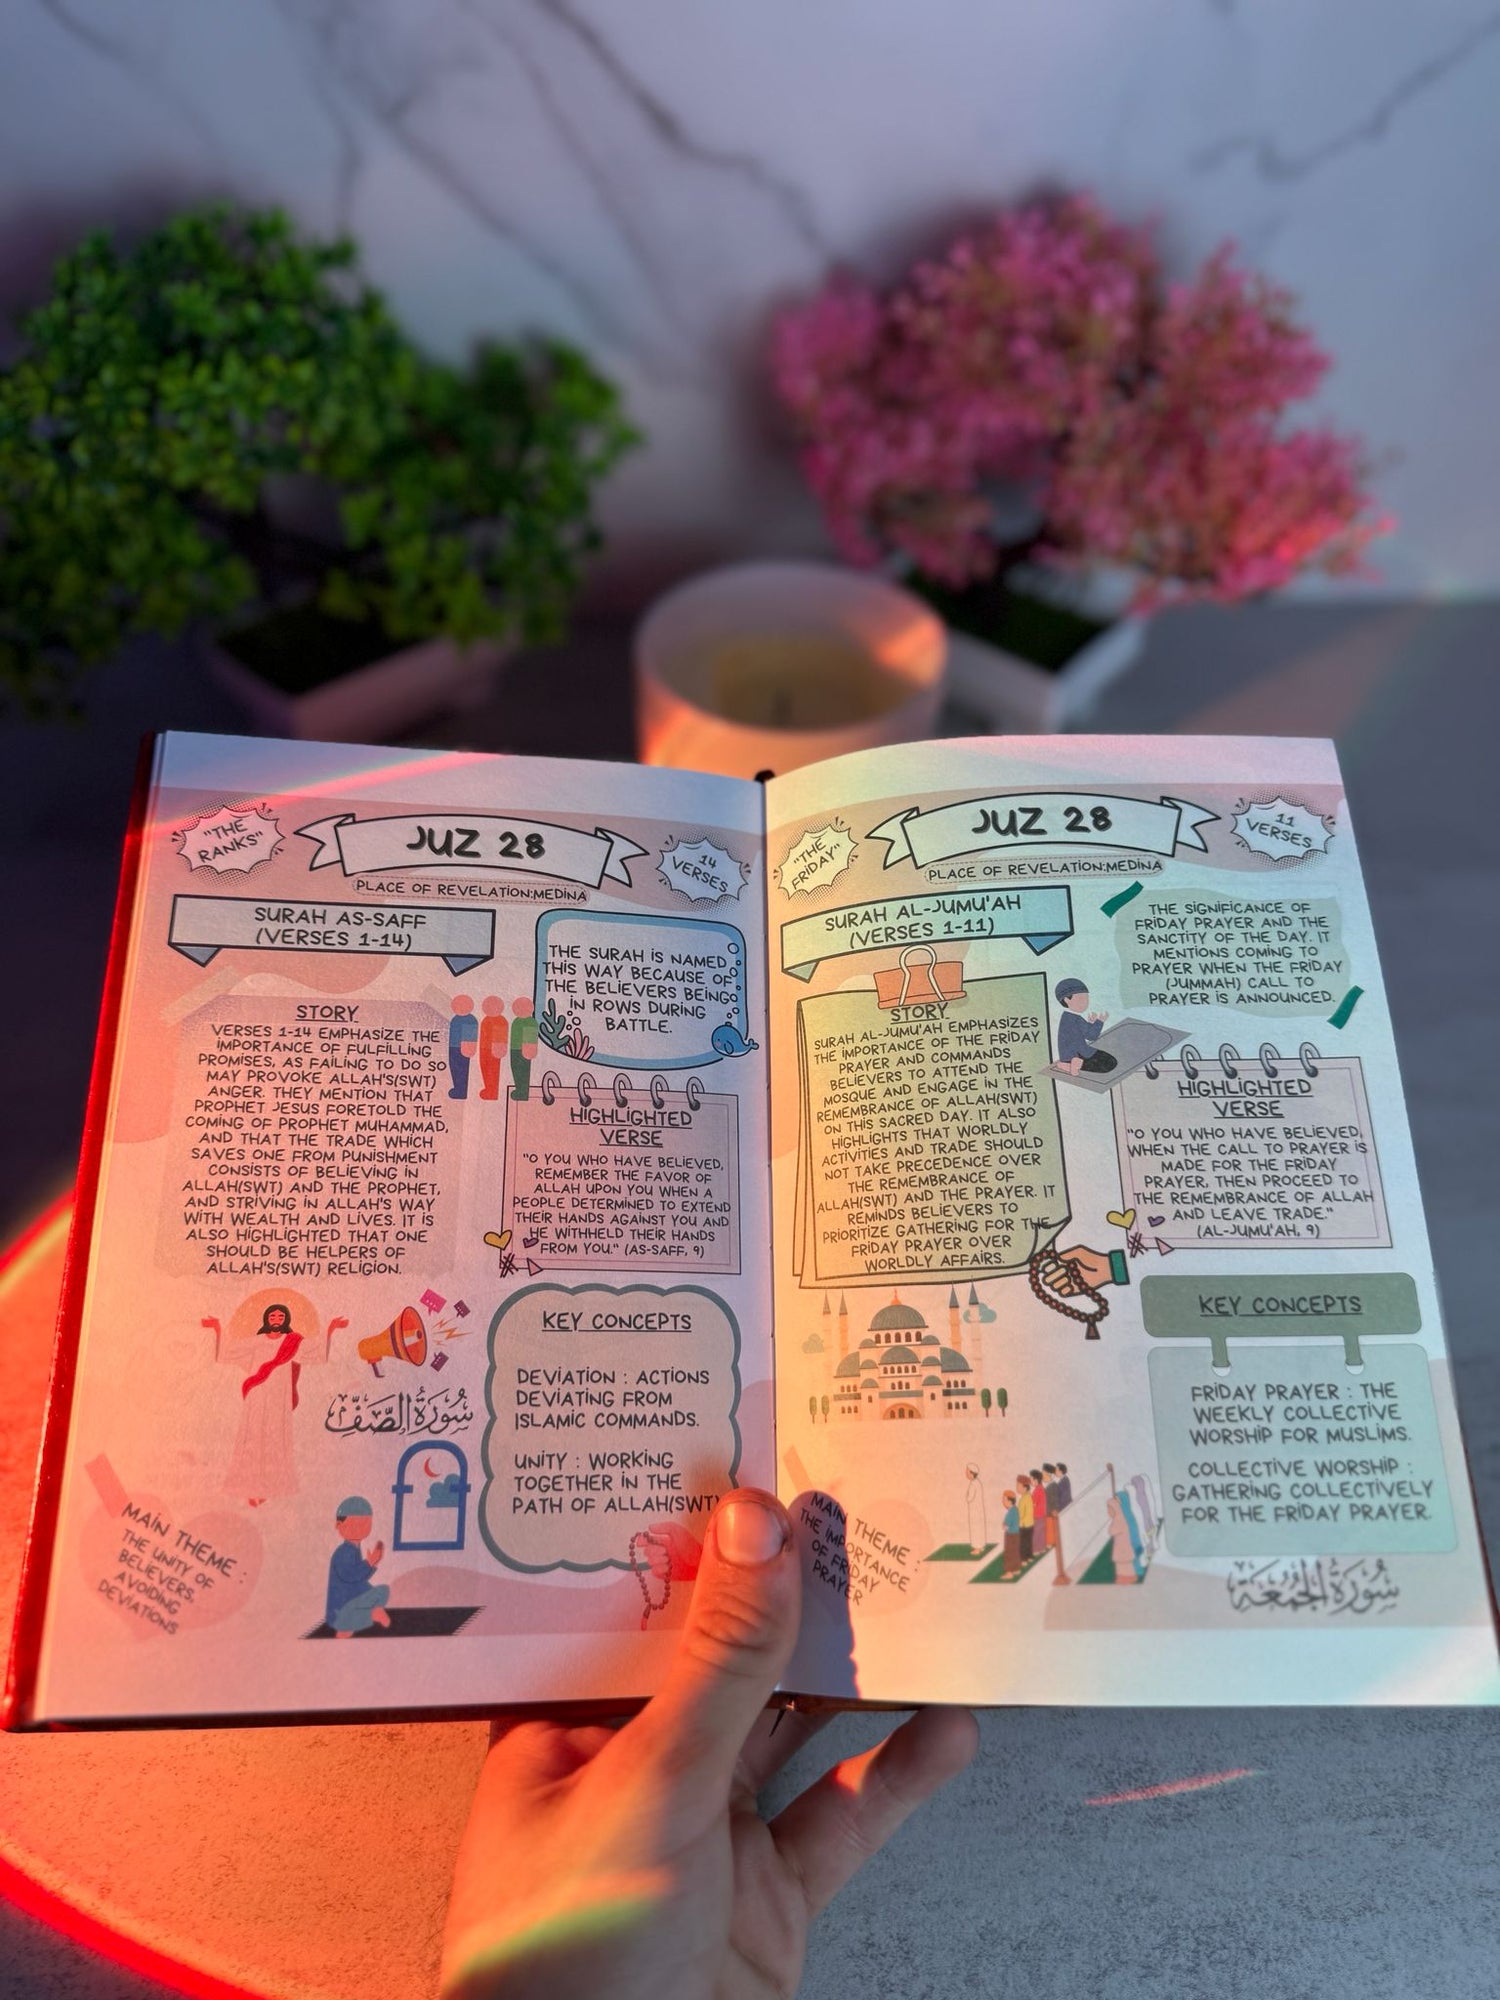 "THE
RANKS"
JUZ 28
14
VERSES
PLACE OF REVELATION:MEDINA
SURAH AS-SAFF
(VERSES 1-14)
THE SURAH IS NAMED
THIS WAY BECAUSE OF
THE BELIEVERS BEING
IN ROWS DURING
BATTLE.
STORY
VERSES 1-14 EMPHASIZE THE
IMPORTANCE OF FULFILLING
PROMISES, AS FAILING TO DO SO
MAY PROVOKE ALLAH'S(SWT)
ANGER. THEY MENTION THAT
PROPHET JESUS FORETOLD THE
COMING OF PROPHET MUHAMMAD,
AND THAT THE TRADE WHICH
SAVES ONE FROM PUNISHMENT
CONSISTS OF BELIEVING IN
ALLAH(SWT) AND THE PROPHET,
AND STRIVING IN ALLAH'S WAY
WITH WEALTH AND LIVES. IT IS
ALSO HIGHLIGHTED THAT ONE
SHOULD BE HELPERS OF
ALLAH'S(SWT) RELIGION.
HIGHLIGHTED
VERSE
"O YOU WHO HAVE BELIEVED,
REMEMBER THE FAVOR OF
ALLAH UPON YOU WHEN A
PEOPLE DETERMINED TO EXTEND
THEIR HANDS AGAINST YOU AND
HE WITHHELD THEIR HANDS
FROM YOU." (AS-SAFF, 9)
KEY CONCEPTS
DEVIATION : ACTIONS
DEVIATING FROM
ISLAMIC COMMANDS.
UNITY : WORKING
TOGETHER IN THE
PATH OF ALLAH(SWT)
سُورَةُ الصَّفِّ
MAIN THEME :
THE UNITY OF
BELIEVERS,
AVOIDING
DEVIATIONS
"THE
FRIDAY"
JUZ 28
11
VERSES
PLACE OF REVELATION:MEDINA
SURAH AL-JUMU'AH
(VERSES 1-11)
THE SIGNIFICANCE OF
FRIDAY PRAYER AND THE
SANCTITY OF THE DAY. IT
MENTIONS COMING TO
PRAYER WHEN THE FRIDAY
(JUMMAH) CALL TO
PRAYER IS ANNOUNCED.
STORY
SURAH AL-JUMU'AH EMPHASIZES
THE IMPORTANCE OF THE FRIDAY
PRAYER AND COMMANDS
BELIEVERS TO ATTEND THE
MOSQUE AND ENGAGE IN THE
REMEMBRANCE OF ALLAH(SWT)
ON THIS SACRED DAY. IT ALSO
HIGHLIGHTS THAT WORLDLY
ACTIVITIES AND TRADE SHOULD
NOT TAKE PRECEDENCE OVER
THE REMEMBRANCE OF
ALLAH(SWT) AND THE PRAYER. IT
REMINDS BELIEVERS TO
PRIORITIZE GATHERING FOR THE
FRIDAY PRAYER OVER
WORLDLY AFFAIRS.
HIGHLIGHTED
VERSE
"O YOU WHO HAVE BELIEVED,
WHEN THE CALL TO PRAYER IS
MADE FOR THE FRIDAY
PRAYER, THEN PROCEED TO
THE REMEMBRANCE OF ALLAH
AND LEAVE TRADE."
(AL-JUMU'AH, 9)
KEY CONCEPTS
FRIDAY PRAYER : THE
WEEKLY COLLECTIVE
WORSHIP FOR MUSLIMS.
COLLECTIVE WORSHIP :
GATHERING COLLECTIVELY
FOR THE FRIDAY PRAYER.
MAIN THEME :
THE IMPORTANCE
OF FRIDAY
PRAYER
سُورَةُ الجُمُعَةِ